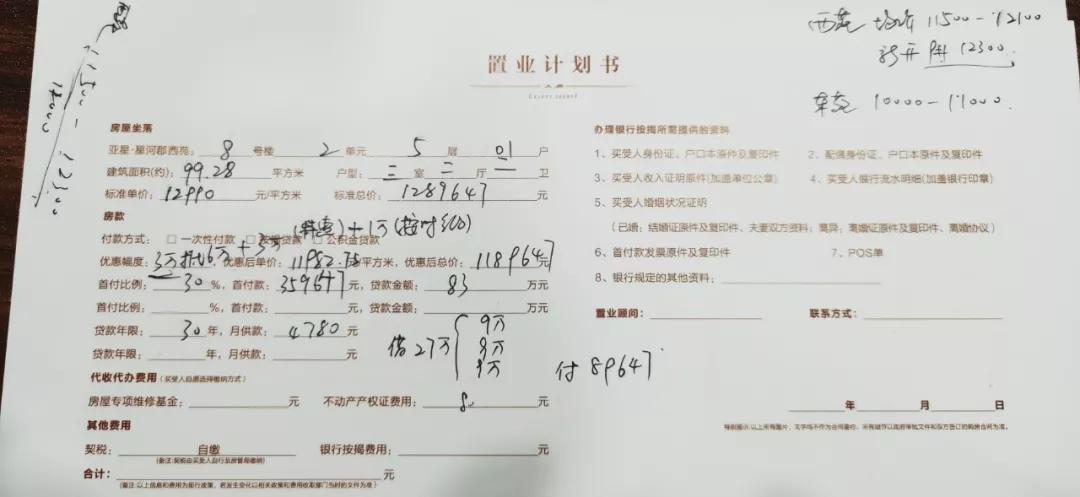 西苑 均价 11500-12100
新开 12300
东苑 10000-11000
11500-12300
12000
置业计划书
房屋坐落
亚星·星河郡西苑: 8 号楼 2 单元 5 层 01 户
建筑面积(约): 99.28 平方米 户型: 三 室 二 厅 一 卫
标准单价: 12990 元/平方米 标准总价: 1289647 元
房款
(特惠)+1万(按时签约)
付款方式: □ 一次性付款 □ 按揭贷款 □ 公积金贷款
3万抵6万+3万
优惠幅度: 优惠后单价: 11982.75 元/平方米, 优惠后总价: 1189647 元
首付比例: 30 %, 首付款: 359647 元, 贷款金额: 83 万元
首付比例: %, 首付款: 元, 贷款金额: 万元
贷款年限: 30 年, 月供款: 4780 元
贷款年限: 年, 月供款: 元
借27万 9万
9万
9万
付 89647
代收代办费用 (买受人自愿选择缴纳方式)
房屋专项维修基金: 元 不动产产权证费用: 80 元
其他费用
契税: 自缴 元 银行按揭费用: 元
(备注:契税由买受人自行至房管局缴纳)
合计: 元
(备注:以上信息和费用为现行政策,若发生变化以相关政策和费用收取部门当时的文件为准)
办理银行按揭所需提供的资料
1、买受人身份证、户口本原件及复印件 2、配偶身份证、户口本原件及复印件
3、买受人收入证明原件(加盖单位公章) 4、买受人银行流水明细(加盖银行印章)
5、买受人婚姻状况证明
(已婚:结婚证原件及复印件、夫妻双方资料;离异:离婚证原件及复印件、离婚协议)
6、首付款发票原件及复印件 7、POS单
8、银行规定的其他资料:
置业顾问: 联系方式:
年 月 日
特别提示:以上所有图片、文字均不作为合同要约,所有细节以政府审批文件和双方签订的购房合同为准。